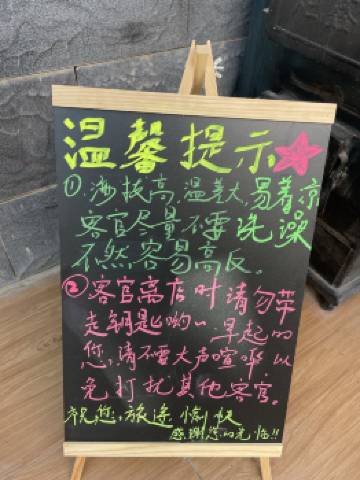 温馨提示
①、海拔高,温差大,易着凉
客官尽量不要洗澡
不然容易高反。
②客官离店时请勿带
走钥匙哟~早起的
您,请不要大声喧哗以
免打扰其他客官。
祝您,旅途愉快
感谢您的光临!!